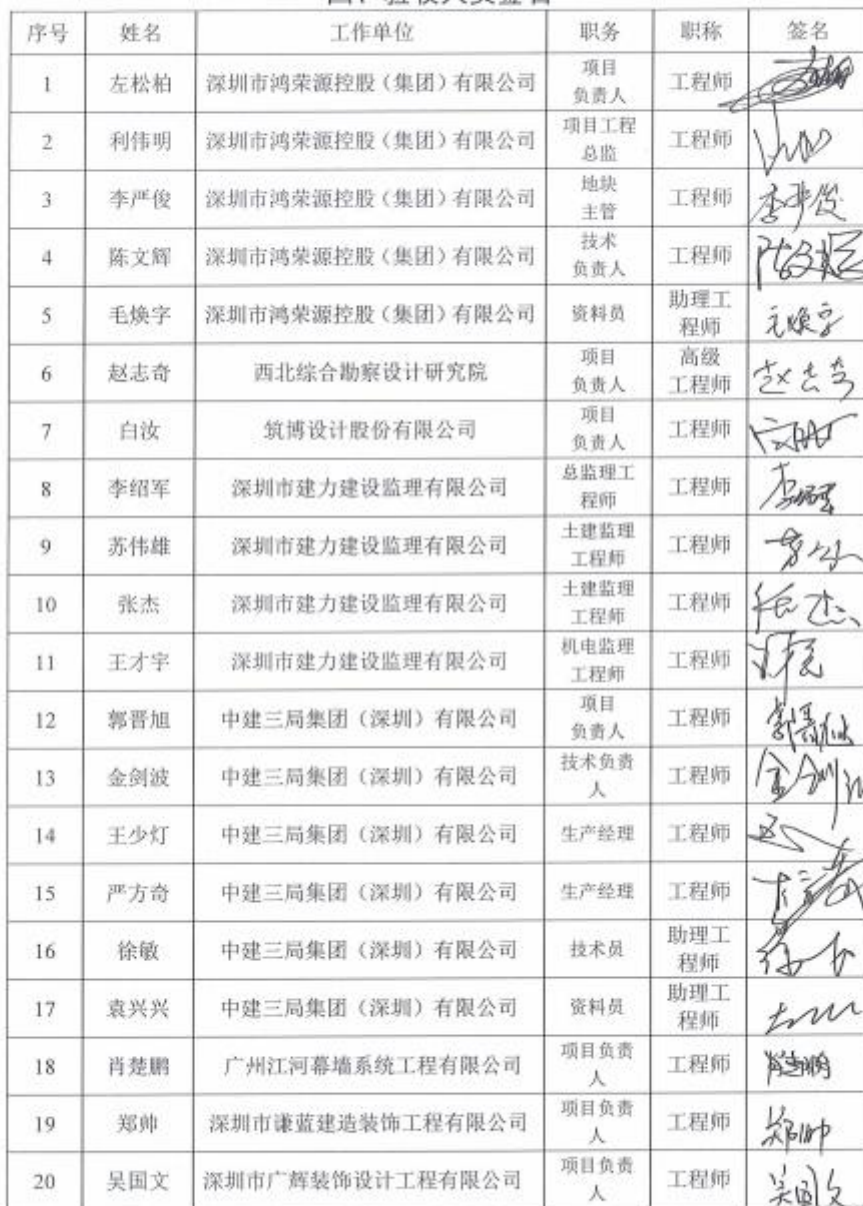 四、验收人员签名
序号 姓名 工作单位 职务 职称 签名
1 左松柏 深圳市鸿荣源控股（集团）有限公司 项目负责人 工程师
2 利伟明 深圳市鸿荣源控股（集团）有限公司 项目工程总监 工程师
3 李严俊 深圳市鸿荣源控股（集团）有限公司 地块主管 工程师 李严俊
4 陈文辉 深圳市鸿荣源控股（集团）有限公司 技术负责人 工程师 陈文辉
5 毛焕字 深圳市鸿荣源控股（集团）有限公司 资料员 助理工程师 毛焕字
6 赵志奇 西北综合勘察设计研究院 项目负责人 高级工程师 赵志奇
7 白汝 筑博设计股份有限公司 项目负责人 工程师
8 李绍军 深圳市建力建设监理有限公司 总监理工程师 工程师 李绍军
9 苏伟雄 深圳市建力建设监理有限公司 土建监理工程师 工程师
10 张杰 深圳市建力建设监理有限公司 土建监理工程师 工程师
11 王才宇 深圳市建力建设监理有限公司 机电监理工程师 工程师
12 郭晋旭 中建三局集团（深圳）有限公司 项目负责人 工程师 郭晋旭
13 金剑波 中建三局集团（深圳）有限公司 技术负责人 工程师 金剑波
14 王少灯 中建三局集团（深圳）有限公司 生产经理 工程师
15 严方奇 中建三局集团（深圳）有限公司 生产经理 工程师
16 徐敏 中建三局集团（深圳）有限公司 技术员 助理工程师
17 袁兴兴 中建三局集团（深圳）有限公司 资料员 助理工程师
18 肖楚鹏 广州江河幕墙系统工程有限公司 项目负责人 工程师 肖楚鹏
19 郑帅 深圳市谦蓝建造装饰工程有限公司 项目负责人 工程师 郑帅
20 吴国文 深圳市广辉装饰设计工程有限公司 项目负责人 工程师 吴国文